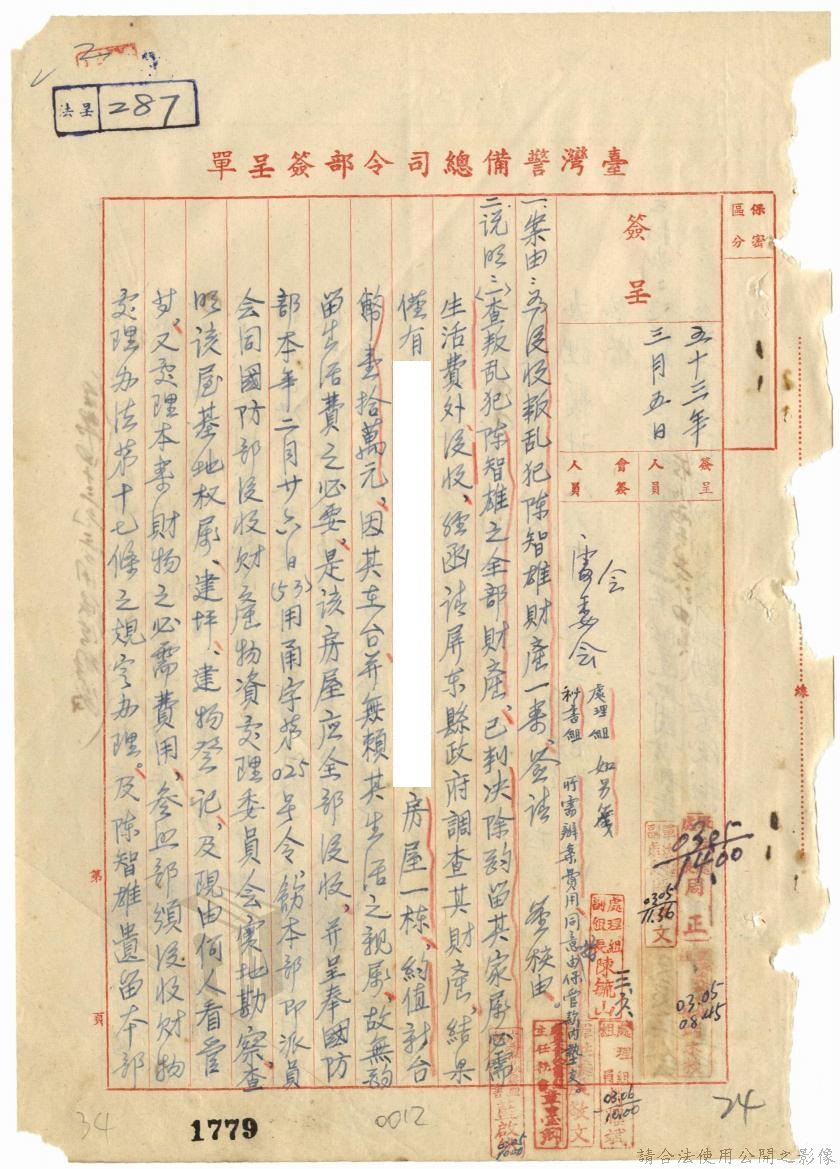 法呈 287
臺灣警備總司令部簽呈單
保密區分
簽呈
五十三年
三月五日
簽呈人員
會簽人員
一、案由：為沒收叛乱犯陳智雄財產一案、簽請 鑒核由。
二、說明：〈一〉查叛乱犯陳智雄之全部財產、已判決除酌留其家屬必需
生活費外沒收、經函請屏东縣政府調查其財產、結果
僅有 房屋一栋、約值新台
幣壹拾萬元、因其在台并無賴其生活之親屬、故無酌
留生活費之必要、是該房屋应全部沒收、并呈奉國防
部本年二月廿六日(53)用甬字第025号令、飭本部即派員
会同國防部沒收財產物資处理委員会實地勘察、查
明該屋基地权屬、建坪、建物登记、及現由何人看管
等、又处理本案財物之必需費用、參照部頒沒收財物
处理办法第十七條之規定办理。及陳智雄遺留本部
会
處理組 如另簽
秘書組 所需辦案費用同意由保管款內墊支。
處理組副組長陳毓山
處理組
正
文
0305
1400
0305
11.56
03.05
08.45
03.06
10.00
線
第
頁
34
1779
0012
24
請合法使用公開之影像